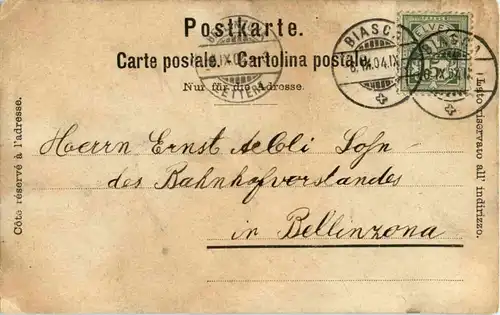 Postkarte.
Carte postale. Cartolina postale.
Nur für die Adresse.
BIASCA
8. IX. 04. IX
HELVETIA
5
BIASCA
8. IX. 04.
BELLINZONA
LETTERE
Herrn Ernst Aebli Sohn
des Bahnhofvorstandes
in Bellinzona
Côté réservé à l'adresse.
Lato riservato all' indirizzo.